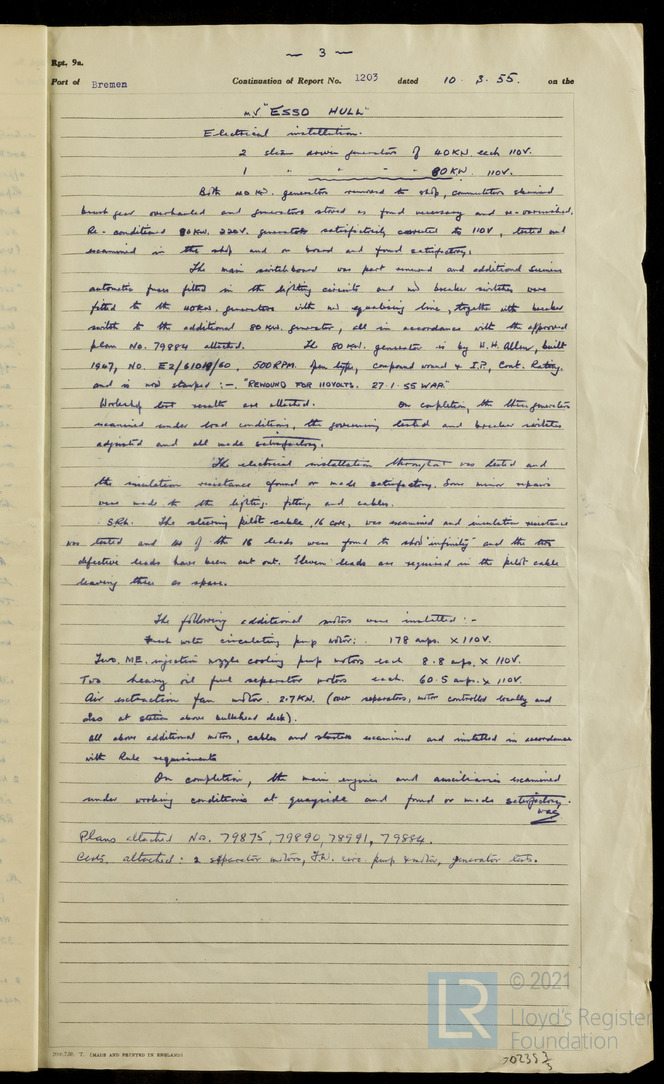 — 3 —
Rpt. 9a.
Port of Bremen Continuation of Report No. 1203 dated 10 · 3 · 55. on the
M.V. "ESSO HULL"
Electrical installation.
2 steam driven generators of 40KW each 110V.
1 " " " 80KW. 110V.
Both 40 KW. generators removed to shop, commutators skimmed
brush gear overhauled and generators stoved as found necessary and re-varnished.
Re-conditioned 80KW. 220V. generator satisfactorily converted to 110V, tested and
examined in the shop and on board and found satisfactory.
The main switchboard was part renewed and additional Siemens
automatic fuses fitted in the lighting circuits and new breaker switches were
fitted to the 40KW. generators with new equalising line, together with breaker
switch to the additional 80 KW. generator, all in accordance with the approved
plan No. 79884 attached. The 80 KW. generator is by W.H. Allen, built
1947, NO. E2/61019/60, 500 RPM. open type, compound wound & I.P., Cont. Rating.
and is now stamped :-. "REWOUND FOR 110VOLTS. 27·1·55 WAR."
Workshop test results are attached. On completion, the three generators
examined under load conditions, the governing tested and breaker switches
adjusted and all made satisfactory.
The electrical installation throughout was tested and
the insulation resistance found or made satisfactory. Some minor repairs
were made to the lighting fittings and cables.
The steering pilot cable, 16 core, was examined and insulation resistance
was tested and 14 of the 16 leads were found to show "infinity" and the two
defective leads have been cut out. Eleven leads are required in the pilot cable
leaving three as spare.
The following additional motors were installed :-
Fresh water circulating pump motor: 178 amps. X 110V.
Two. M.E. injection nozzle cooling pump motors each 8.8 amps. X 110V.
Two heavy oil fuel separator motors each. 60.5 amps. X 110V.
Air extraction fan motor. 2.7KW. (over separators, motor controlled locally and
also at station above bulkhead deck).
All above additional motors, cables and starters examined and installed in accordance
with Rule requirements
On completion, the main engines and auxiliaries examined
under working conditions at quayside and found or made satisfactory.
WAR
Plans attached No. 79875, 79890, 78991, 79884.
Certs. attached: 2 separator motors, F.W. circ. pump & motor, generator tests.
2m.7.50. T. (MADE AND PRINTED IN ENGLAND)
LR
© 2021
Lloyd's Register
Foundation